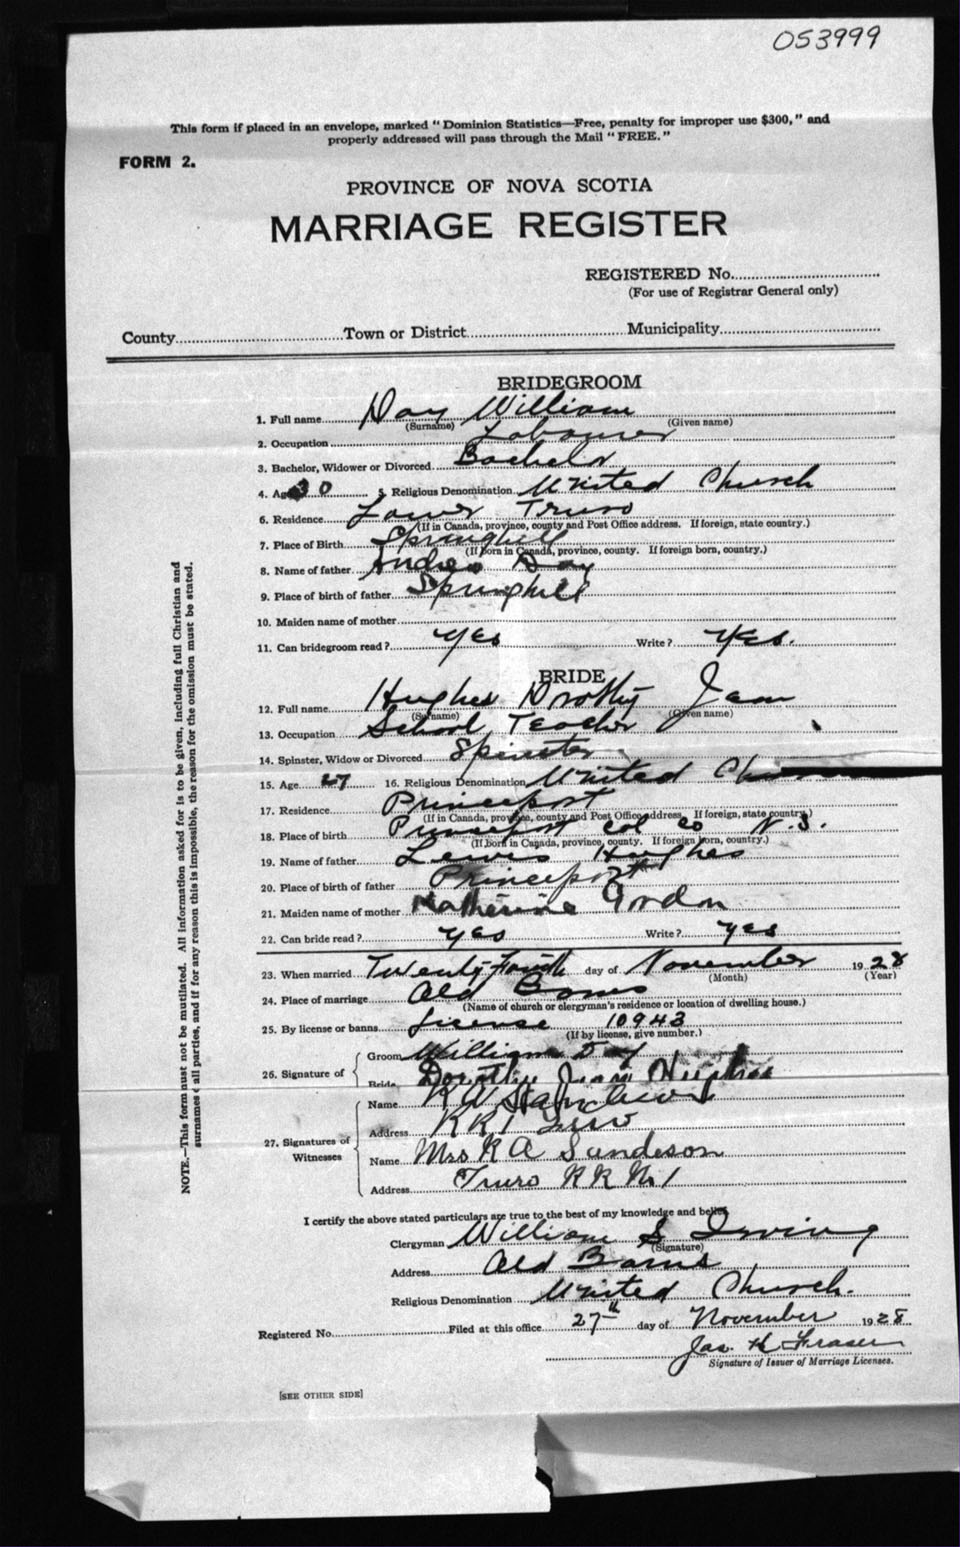 053999
This form if placed in an envelope, marked "Dominion Statistics—Free, penalty for improper use $300," and
properly addressed will pass through the Mail "FREE."
FORM 2.
PROVINCE OF NOVA SCOTIA
MARRIAGE REGISTER
REGISTERED No.
(For use of Registrar General only)
County Town or District Municipality
BRIDEGROOM
1. Full name Day William
(Surname) (Given name)
2. Occupation Labourer
3. Bachelor, Widower or Divorced Bachelor
4. Age 30 5. Religious Denomination United Church
6. Residence Lower Truro
(If in Canada, province, county and Post Office address. If foreign, state country.)
7. Place of Birth Springhill
(If born in Canada, province, county. If foreign born, country.)
8. Name of father Andrew Day
9. Place of birth of father Springhill
10. Maiden name of mother
11. Can bridegroom read? yes Write? yes.
BRIDE
12. Full name Hughes Drothy Jean
(Surname) (Given name)
13. Occupation School Teacher
14. Spinster, Widow or Divorced Spinster
15. Age 27 16. Religious Denomination United Church
17. Residence Princeport
(If in Canada, province, county and Post Office address. If foreign, state country.)
18. Place of birth Princeport Col Co N.S.
(If born in Canada, province, county. If foreign born, country.)
19. Name of father Lewis Hughes
20. Place of birth of father Princeport
21. Maiden name of mother Katherine Gordon
22. Can bride read? yes Write? yes
23. When married Twenty-Fourth day of November 1928
(Month) (Year)
24. Place of marriage Old Barns
(Name of church or clergyman's residence or location of dwelling house.)
25. By license or banns License 10943
(If by license, give number.)
26. Signature of
Groom William Day
Bride Dorothy Jean Hughes
27. Signatures of Witnesses
Name R A
Address RR1 Truro
Name Mrs R A Sandeson
Address Truro RR No 1
I certify the above stated particulars are true to the best of my knowledge and belief,
Clergyman William S Irving
(Signature)
Address Old Barns
Religious Denomination United Church.
Registered No. Filed at this office 27th day of November 1928
Jas. H Fraser
Signature of Issuer of Marriage Licenses.
[SEE OTHER SIDE]
NOTE.—This form must not be mutilated. All information asked for is to be given, including full Christian and
surnames of all parties, and if for any reason this is impossible, the reason for the omission must be stated.